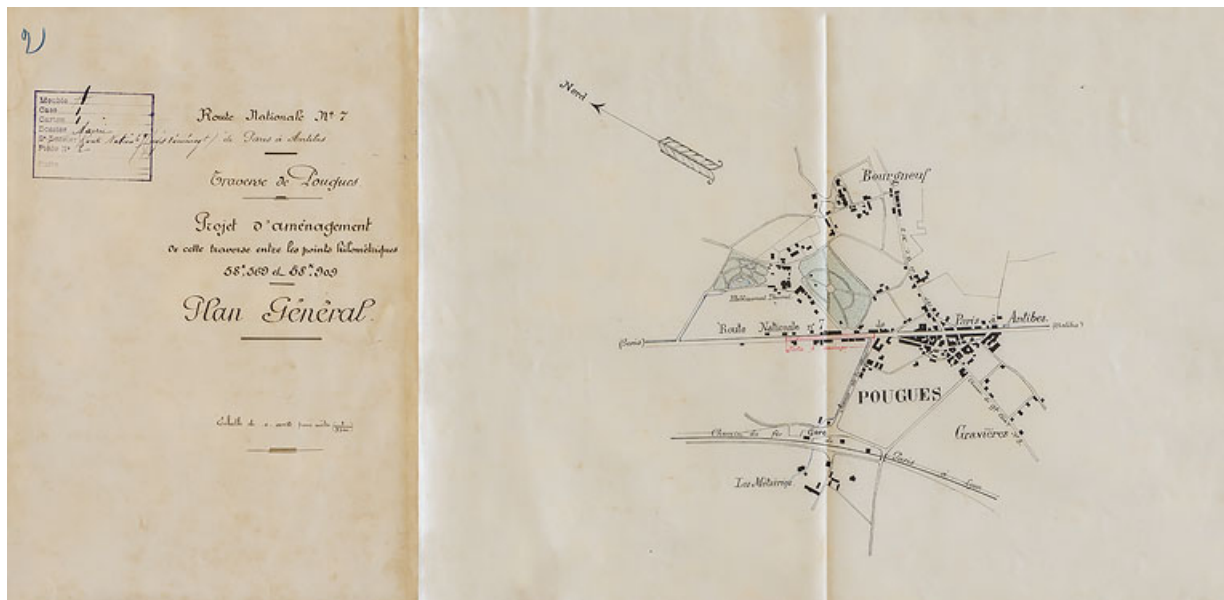 2
Meuble 1
Case 1
Carton 1
Dossier
Pièce N° 2
Route Nationale N° 7
de Paris à Antibes
Traverse de Pougues
Projet d'aménagement
de cette traverse entre les points kilométriques
58k,569 et 58k,909
Plan Général.
Echelle de
Nord
Bourgneuf
Etablissement Thermal
Route Nationale n° 7 de Paris à Antibes.
(Paris)
(Antibes)
POUGUES
Gravières
Chemin de fer de Paris à Lyon
Gare
Les Métairies